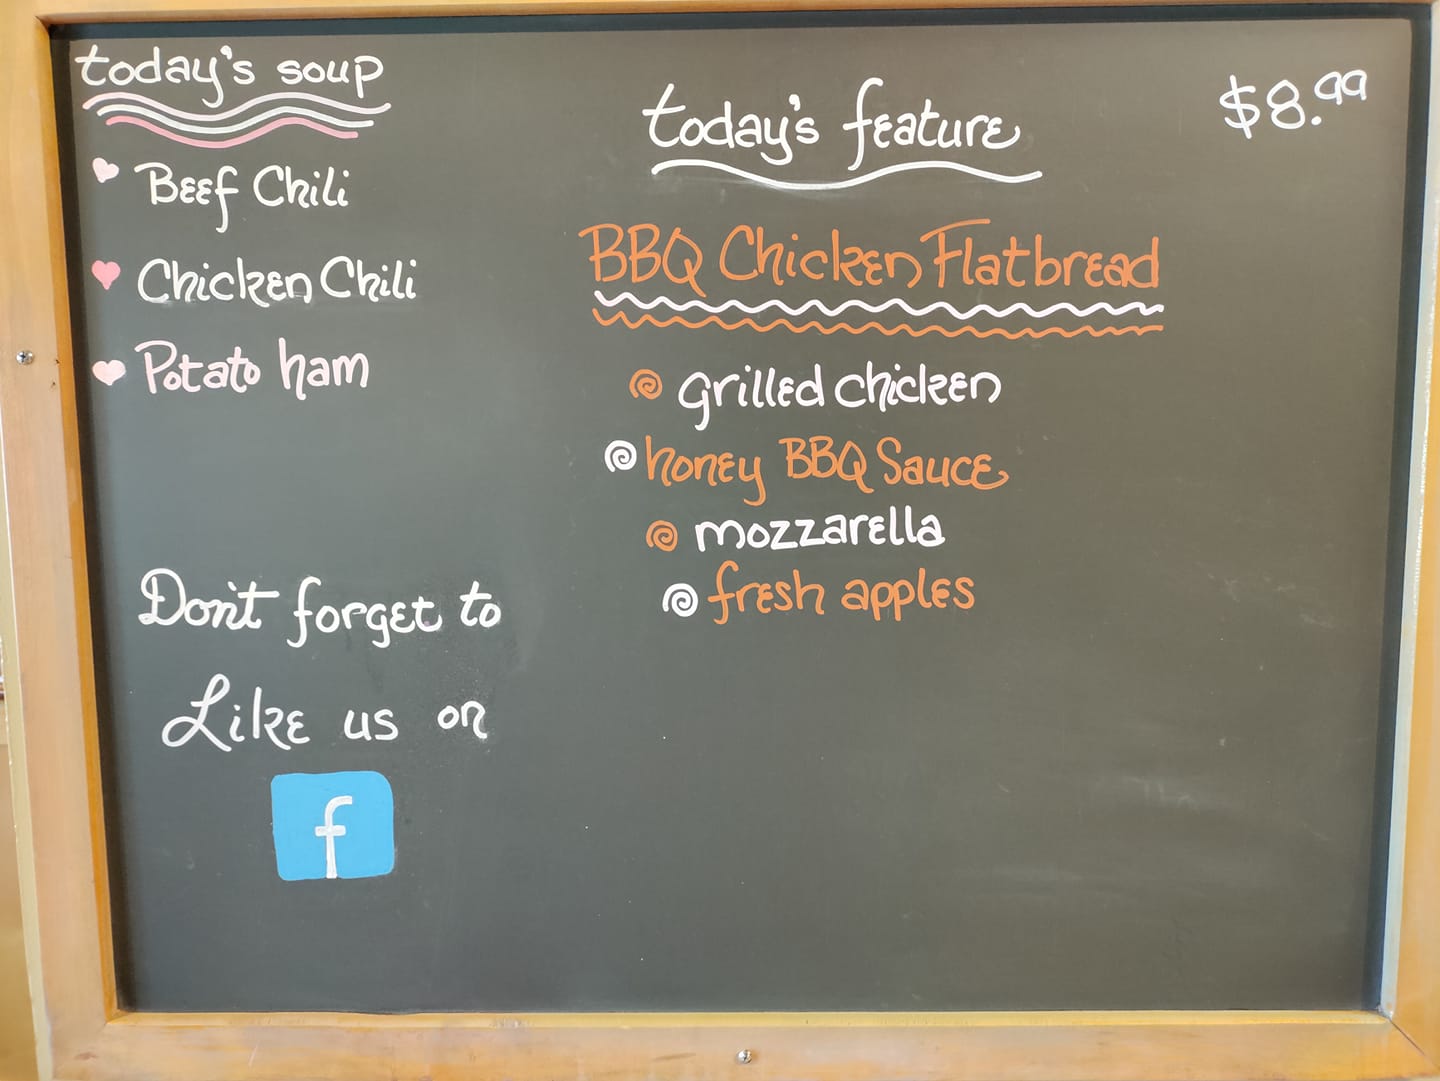 today's soup
Beef Chili
Chicken Chili
Potato ham
Don't forget to
Like us on
f
today's feature
$8.99
BBQ Chicken Flatbread
grilled chicken
honey BBQ Sauce
mozzarella
fresh apples